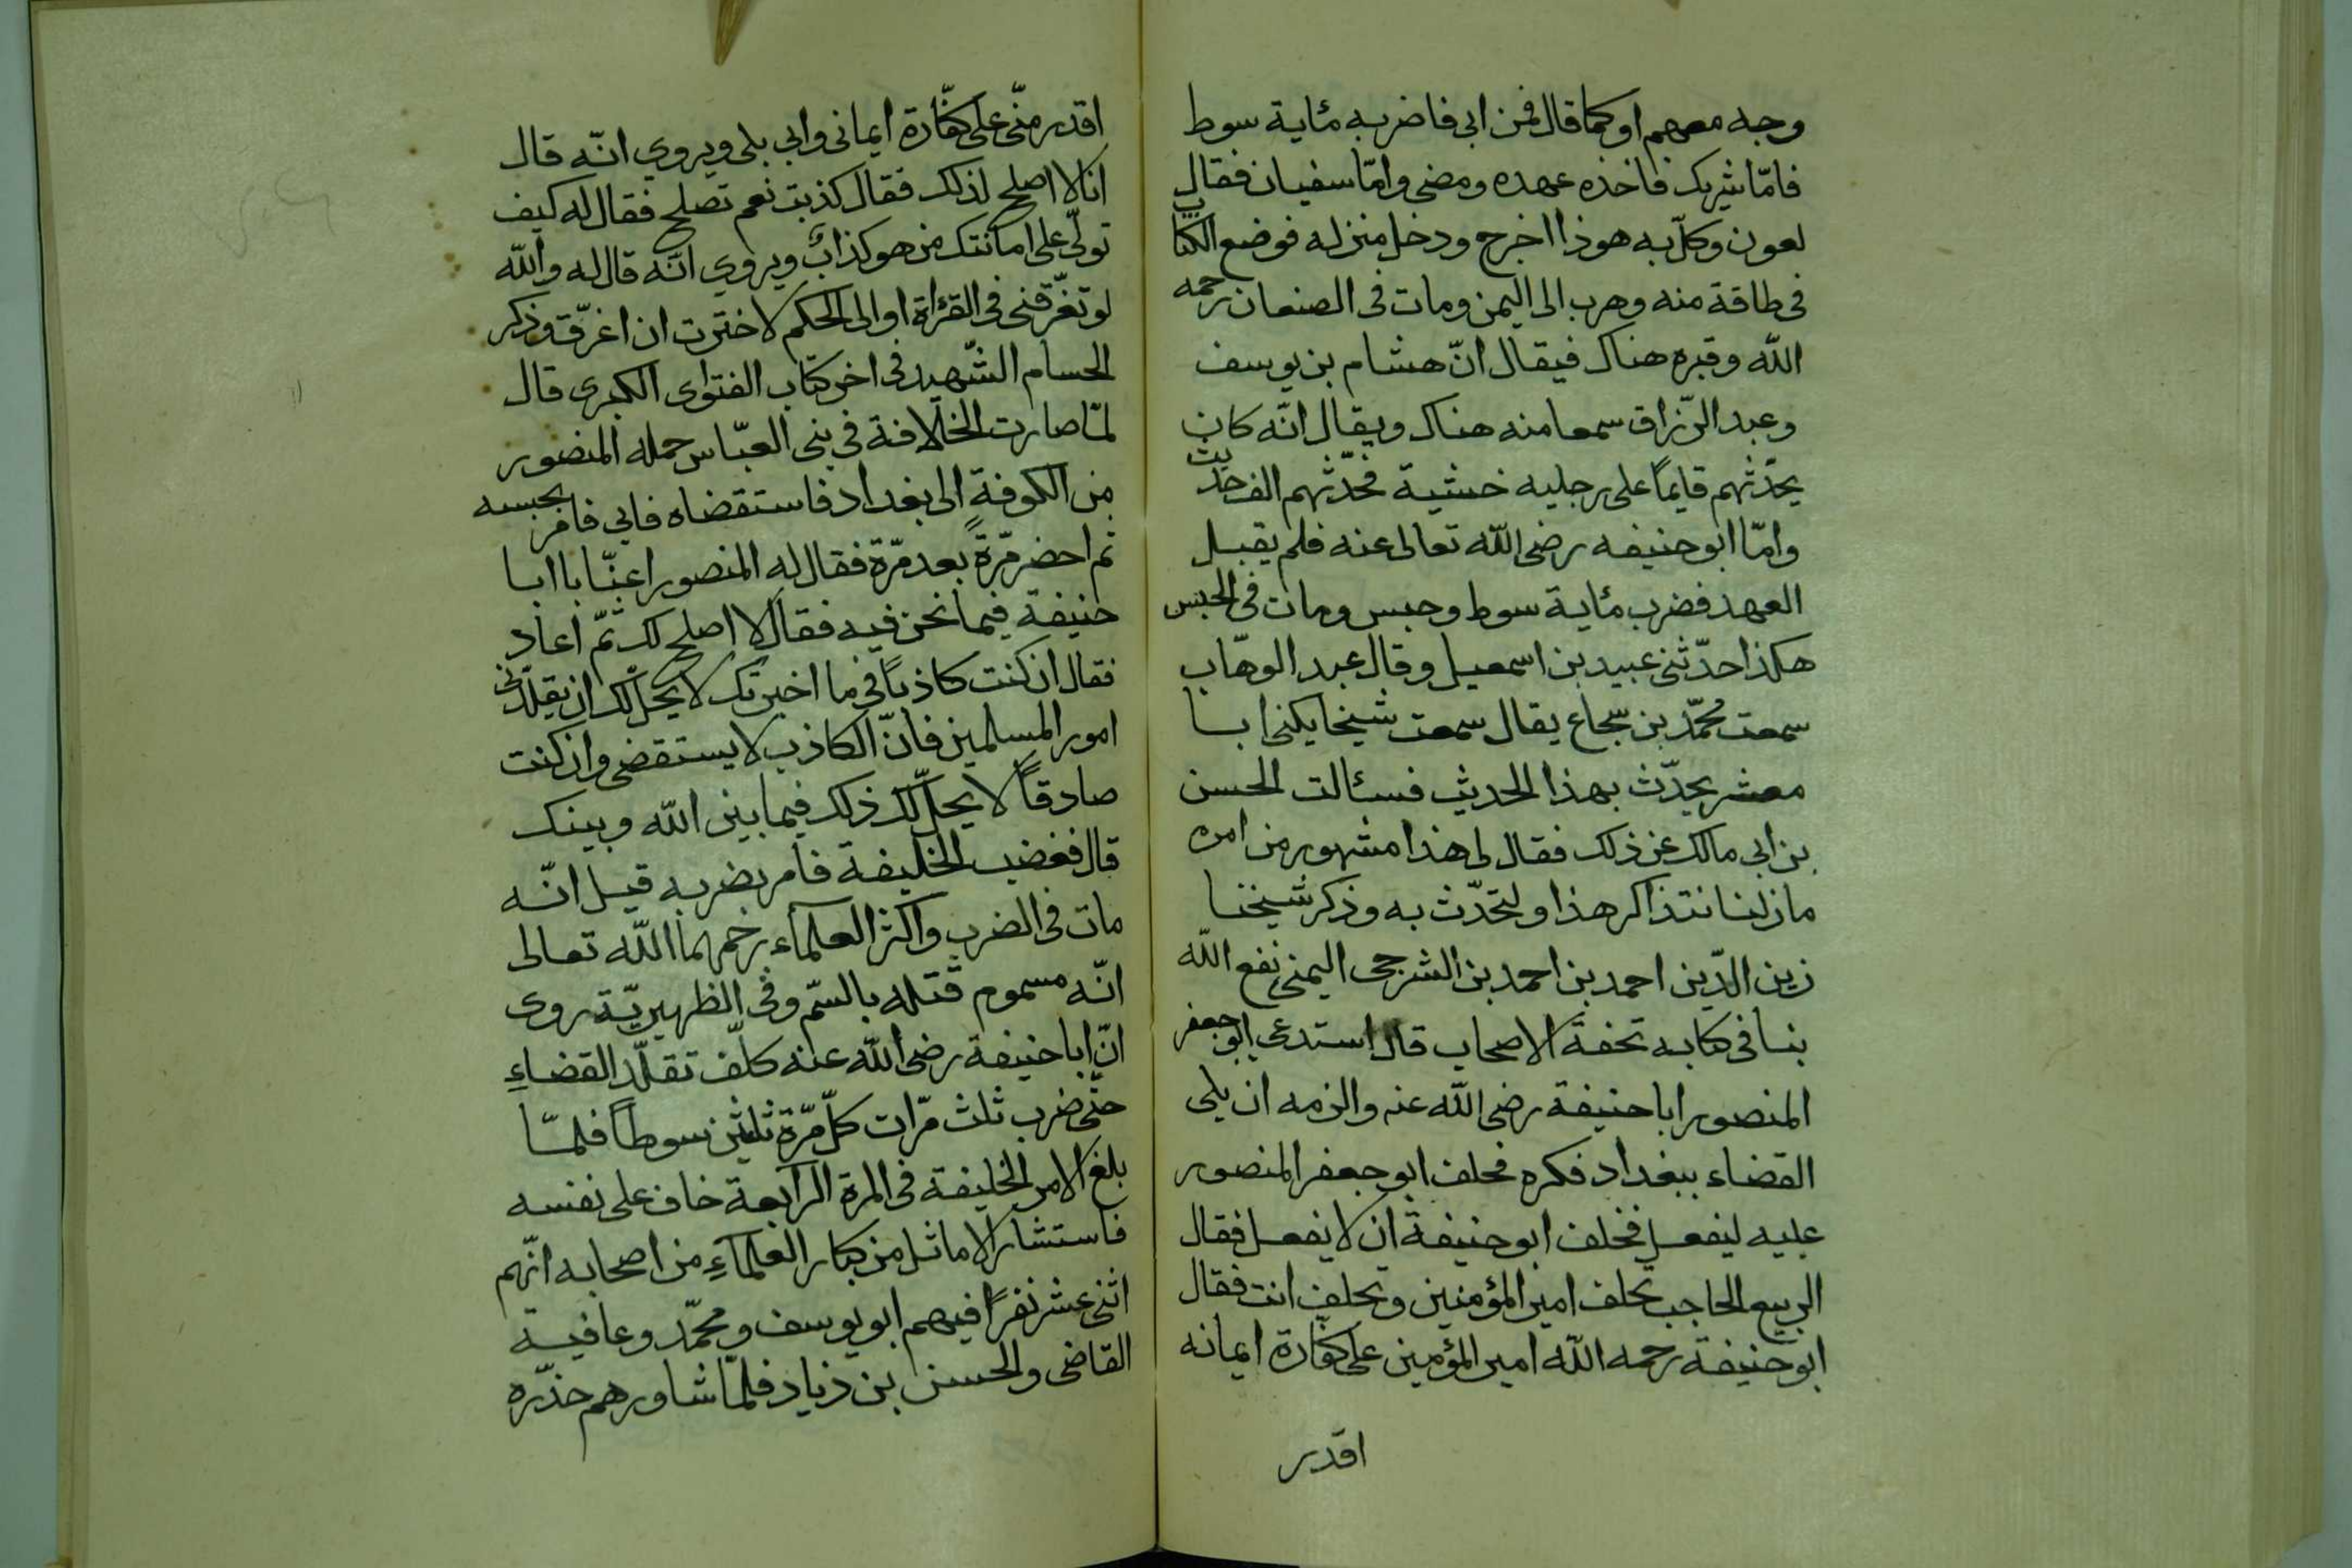 وجه معهم او كما قال فمن ابى فاضربه مئاية سوط
فامّا شريك فاخذه عهده ومضى وامّا سفيان فقال
لعون وكلّ به هوذا اخرج ودخل منزله فوضع الكتاب
فى طاقة منه وهرب الى اليمن ومات فى الصنعان رحمه
الله وقبره هناك فيقال انّ هشام بن يوسف
وعبد الرّزاق سمعا منه هناك ويقال انّه كان
يحدّثهم قايمًا على رجليه خشية فحدّثهم الف حديث
وامّا ابو حنيفه رضى الله تعالى عنه فلم يقبل
العهد فضرب مئاية سوط وحبس ومات فى الحبس
هكذا حدّثنى عبيد بن اسمعيل وقال عبد الوهّاب
سمعت محمّد بن شجاع يقال سمعت شيخا يكنى ابا
معشر يحدّث بهذا الحديث فسئالت الحسن
بن ابى مالك عن ذلك فقال لى هذا مشهور من امره
مازلنا نتذاكر هذا ولتحدّث به وذكر شيخنا
زين الدّين احمد بن احمد بن الشرجى اليمنى نفع الله
بنا فى كتابه تحفة الاصحاب قال استدعى ابو جعفر
المنصور ابا حنيفة رضى الله عنه والزمه ان يلى
القضاء ببغداد فكره فحلف ابو جعفر المنصور
عليه ليفعل فحلف ابو حنيفة ان لا يفعل فقال
الربيع الحاجب تحلف امير المؤمنين وتحلف انت فقال
ابو حنيفة رحمه الله امير المؤمنين على كفّارة ايمانه
اقدر
اقدر منّى على كفّارة ايمانى وابى بلى ويروى انّه قال
انا لا اصلح لذلك فقال كذبت نعم تصلح فقال له كيف
تولّى على امانتك من هو كذابٌ ويروى انّه قال له والله
لو تغرّقنى فى القرٔاة او الى الحكم لاخترت ان اغرّق وذكر
الحسام الشّهيد فى اخر كتاب الفتوى الكبرى قال
لمّا صارت الخلافة فى بنى العبّاس حمله المنصور
من الكوفة الى بغداد فاستقضاه فابى فامر بحبسه
ثم احضر مرّةً بعد مرّة فقال له المنصور اعنّا يا ابا
حنيفة فيما نحن فيه فقال لا اصلح لك ثمّ اعاد
فقال ان كنت كاذبًا فى ما اخبرتك لا يحلّ لك ان تقلّدنى
امور المسلمين فانّ الكاذب لا يستقضى وان كنت
صادقًا لا يحلّ لك ذلك فيما بين الله وبينك
قال فغضب الخليفة فامر بضربه قيل انّه
مات فى الضرب واكثر العلمآء رحمهما الله تعالى
انّه مسموم قتله بالسّم وفى الظهيريّة روى
انّ ابا حنيفة رضى الله عنه كلّف تقلّد القضاءِ
حتّى ضرب ثلث مرّات كلّ مرّة ثلثين سوطًا فلمّا
بلغ الامر الخليفة فى المرة الرابعة خاف على نفسه
فاستشار الاماثل من كبار العلمآءِ من اصحابه انّهم
اثنى عشر نفرًا فيهم ابو يوسف ومحمّد وعافية
القاضى والحسن بن ذياد فلمّا شاورهم حذّره